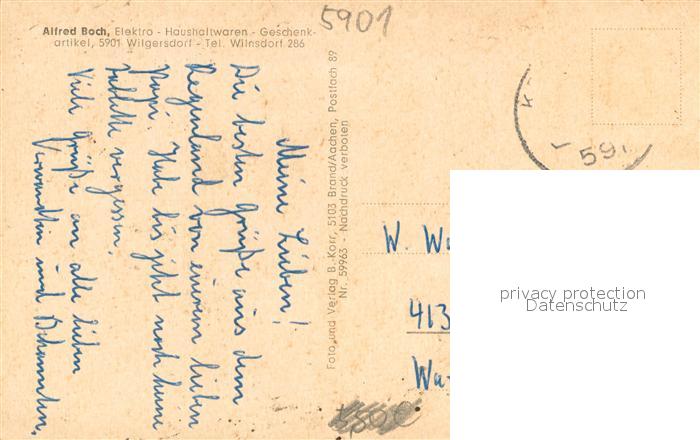 5901
Alfred Boch, Elektro - Haushaltwaren - Geschenk-
artikel, 5901 Wilgersdorf - Tel. Wilnsdorf 286
Meine Lieben!
Die besten Grüße aus dem
Regenland von eurem lieben
Papi. Habe bis jetzt noch keine
Tablette vergessen.
Viele Grüße an alle lieben
Verwandten und Bekannten.
Foto und Verlag B. Korr, 5103 Brand/Aachen, Postfach 89
Nr. 59963 - Nachdruck verboten
59
W. Wu
413
Wa
privacy protection
Datenschutz